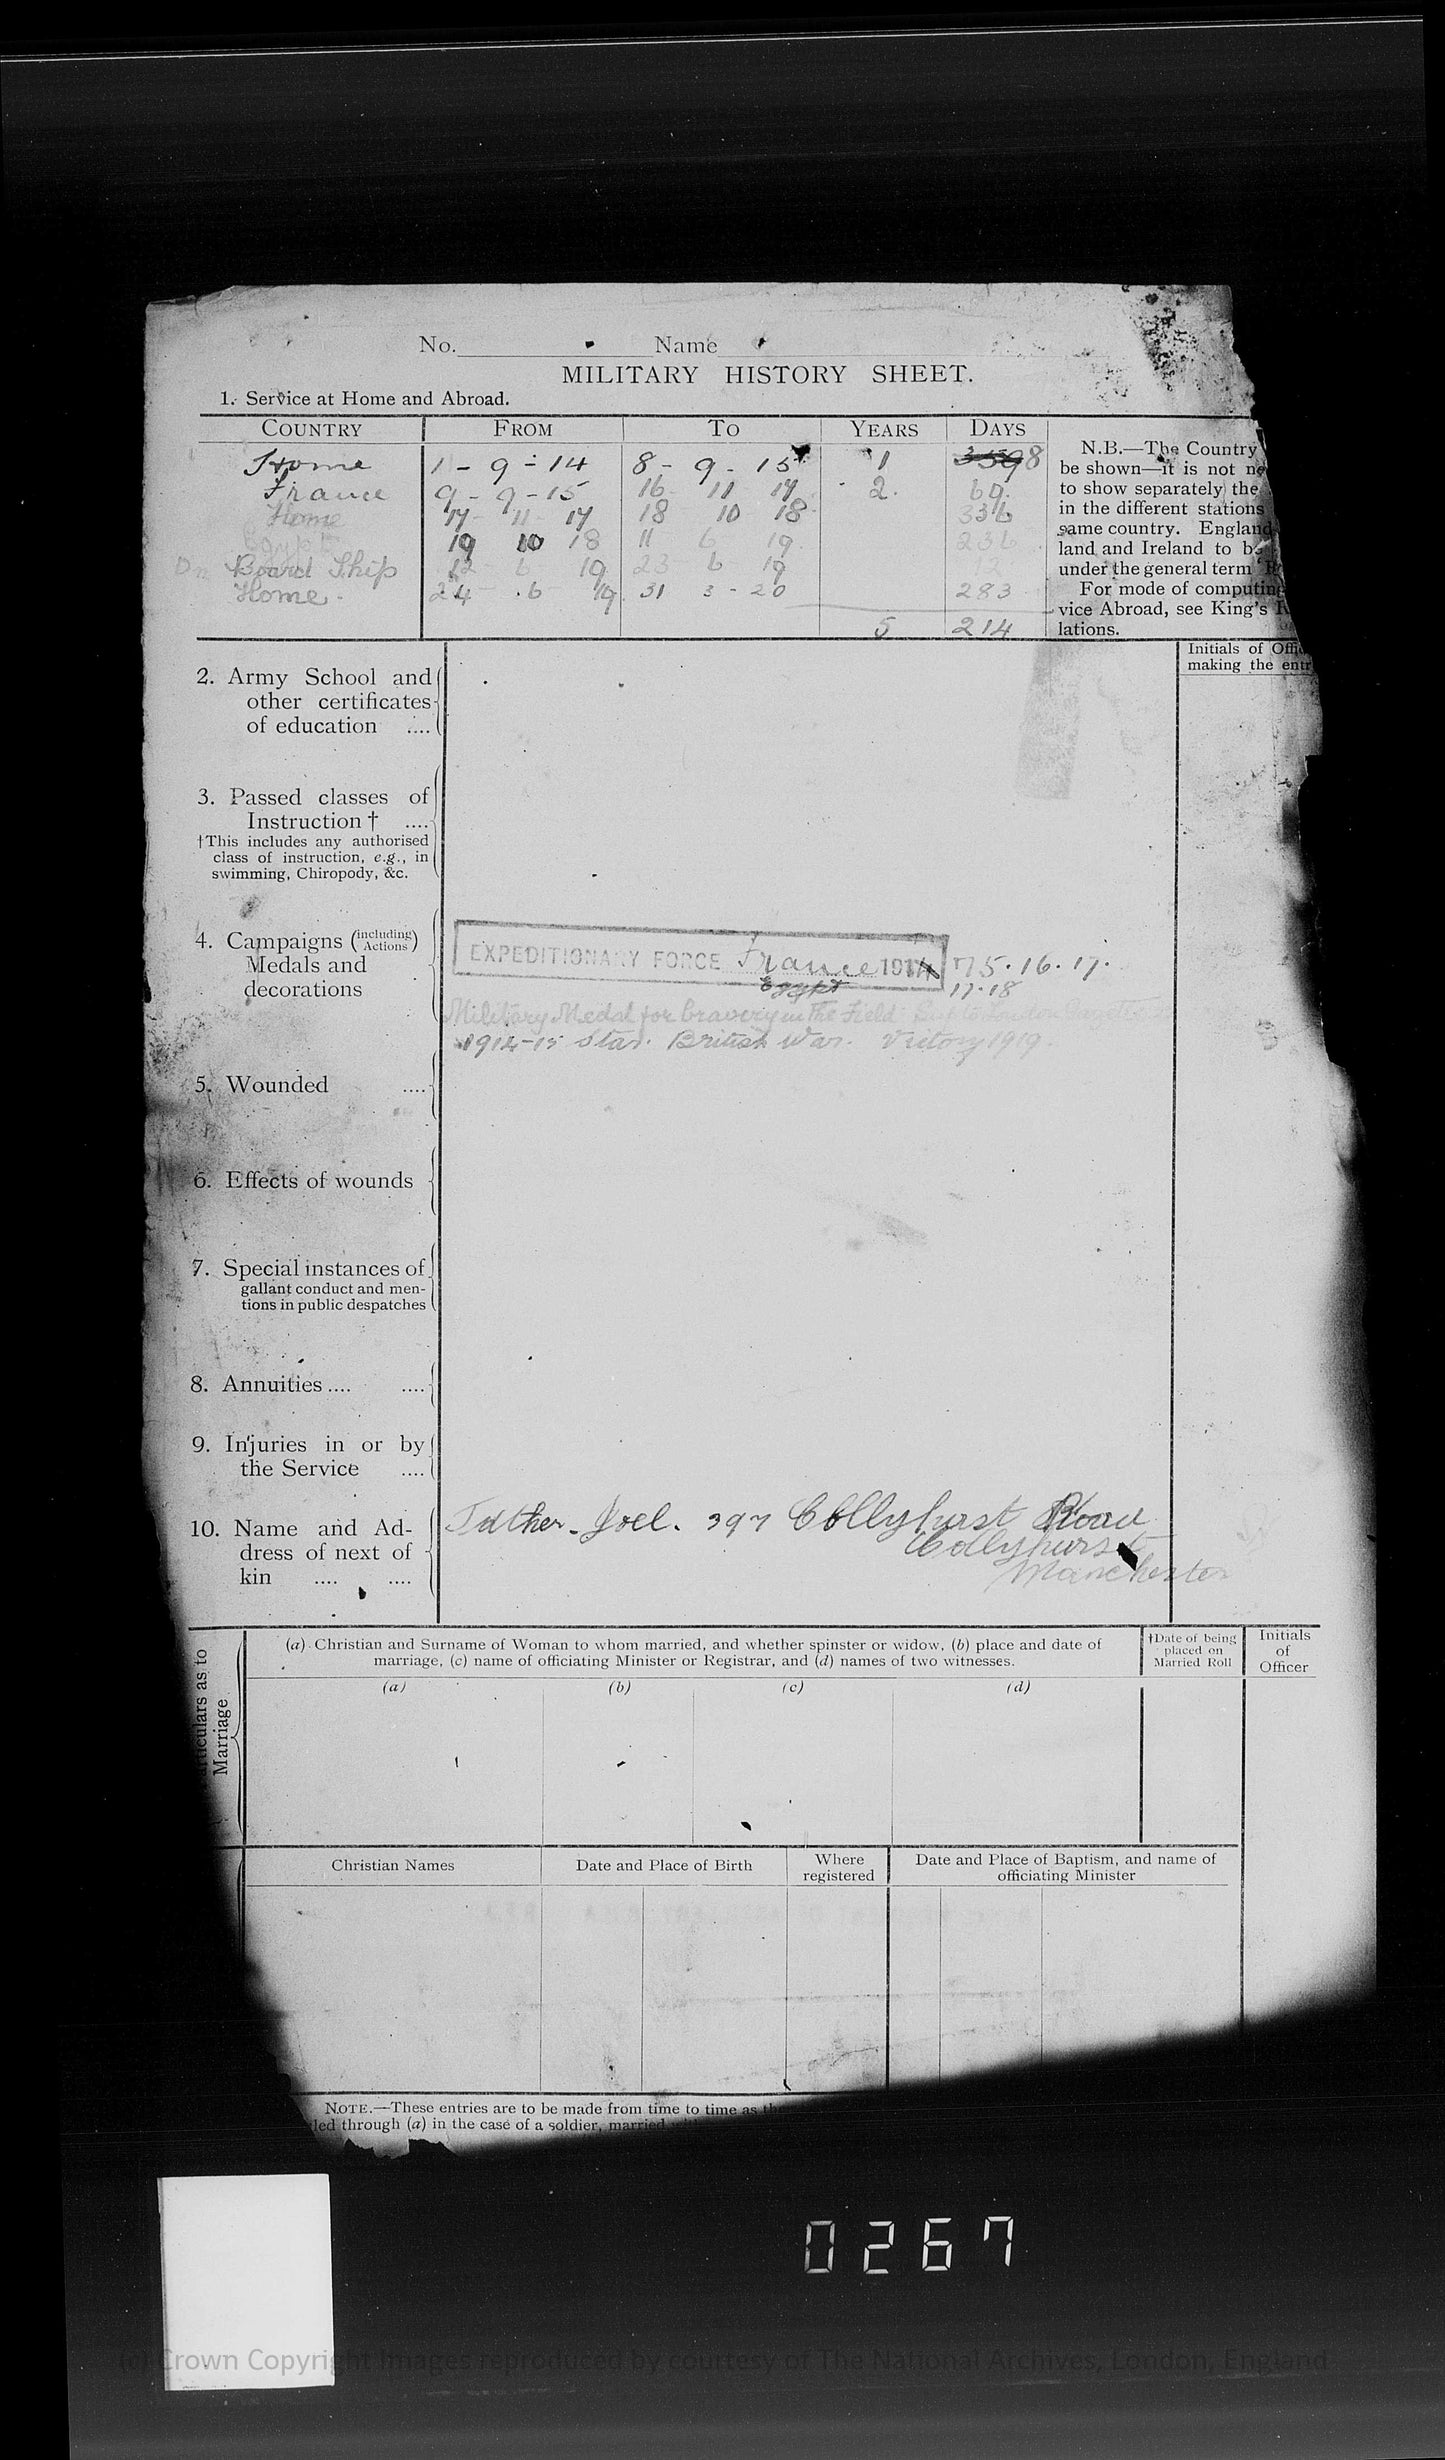 No. Name
MILITARY HISTORY SHEET.
1. Service at Home and Abroad.
COUNTRY FROM TO YEARS DAYS
Home 1 - 9 - 14 8 - 9 - 15 1 8
France 9 - 9 - 15 16 11 17 2. 69.
Home 17 - 11 - 17 18 10 18 336
19 10 18 11 6 19 236
On Board Ship 12 6 19 23 6 19 12
Home. 24 . 6 19 31 3 - 20 283
5 214
N.B.—The Country
be shown—it is not
to show separately the
in the different stations
same country. England
land and Ireland to be
under the general term
For mode of computing
vice Abroad, see King's
lations.
Initials of
making the
2. Army School and
other certificates
of education ....
3. Passed classes of
Instruction † ....
†This includes any authorised
class of instruction, e.g., in
swimming, Chiropody, &c.
4. Campaigns (including Actions)
Medals and
decorations
EXPEDITIONARY FORCE France 1914 15.16.17.
Egypt 17.18
Military Medal for bravery in the Field London Gazette
1914-15 Star. British War. Victory 1919.
5. Wounded ....
6. Effects of wounds
7. Special instances of
gallant conduct and men-
tions in public despatches
8. Annuities .... ....
9. Injuries in or by
the Service ....
10. Name and Ad-
dress of next of
kin .... ....
Father. Joel. 397 Collyhurst Road
Collyhurst
Manchester
Particulars as to
Marriage
(a) Christian and Surname of Woman to whom married, and whether spinster or widow, (b) place and date of
marriage, (c) name of officiating Minister or Registrar, and (d) names of two witnesses.
†Date of being
placed on
Married Roll
Initials
of
Officer
(a) (b) (c) (d)
Christian Names
Date and Place of Birth
Where
registered
Date and Place of Baptism, and name of
officiating Minister
NOTE.—These entries are to be made from time to time as
through (a) in the case of a soldier, married
0267
(c) Crown Copyright Images reproduced by courtesy of The National Archives, London, England